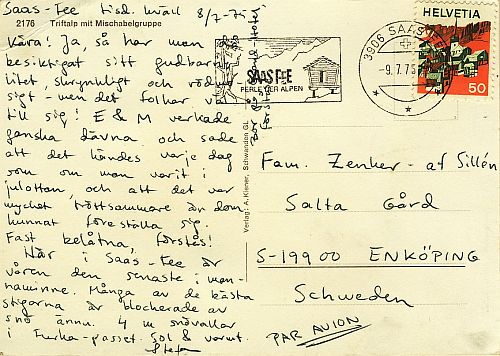 Saas-Fee tisd. kväll 8/7-75
2176 Triftalp mit Mischabelgruppe
Kära! Ja, så har man
besiktigat sitt gudbarn
litet, skrynkligt och röd-
sigt - men det folkar väl
till sig! E & M verkade
ganska dåvna och sade
att det kändes varje dag
som om man varit i
julottan, och att det var
mycket tröttsammare än dom
kunnat föreställa sig.
Fast belåtna, förstås!
Här i Saas-Fee är
våren den senaste i man-
naminne. Många av de bästa
stigarna är blockerade av
snö ännu. 4 m snövallar
i Furka-passet. Sol & varmt.
Stefan
Bor på Hotel
Verlag: A. Kiener, Schwanden GL
SAAS FEE
PERLE DER ALPEN
3906 SAAS-FEE
-9.7.75
HELVETIA
50
Fam. Zenker - af Sillén
Salta Gård
S-19900 ENKÖPING
Schweden
PAR AVION